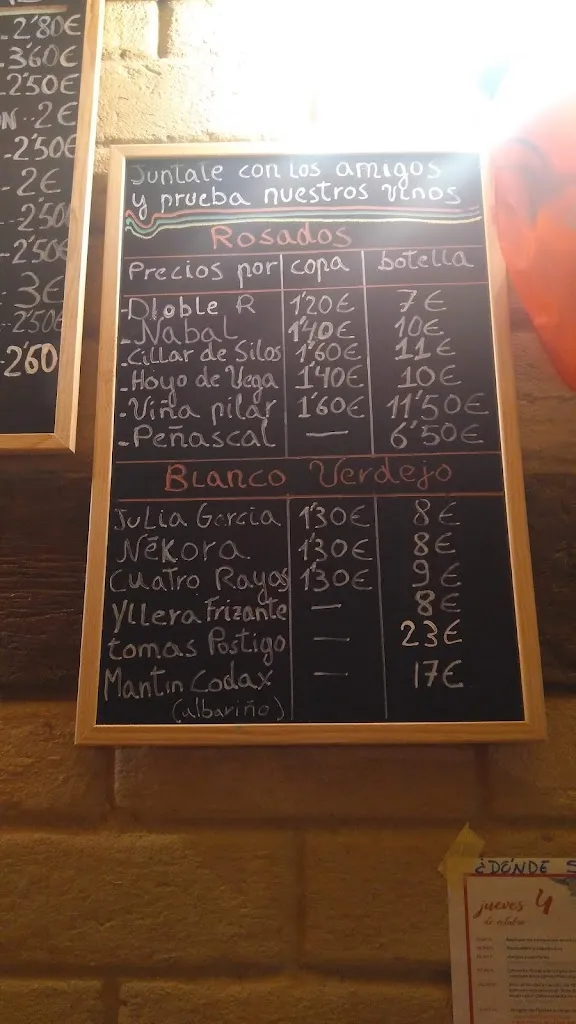 2'80€
3'60€
2'50€
N 2€
2'50€
2€
2'50
2'50€
3€
2'50€
2'60
Juntate con los amigos
y prueba nuestros vinos
Rosados
Precios por copa botella
-Dloble R 1'20€ 7€
-Nabal 1'40€ 10€
-Cillar de Silos 1'60€ 11€
-Hoyo de Vega 1'40€ 10€
-Viña pilar 1'60€ 11'50€
-Peñascal — 6'50€
Blanco Verdejo
Julia Garcia 1'30€ 8€
Nékora 1'30€ 8€
Cuatro Rayas 1'30€ 9€
Yllera Frizante — 8€
tomas Postigo — 23€
Mantin Codax — 17€
(albariño)
¿DÓNDE S
jueves 4
de octubre